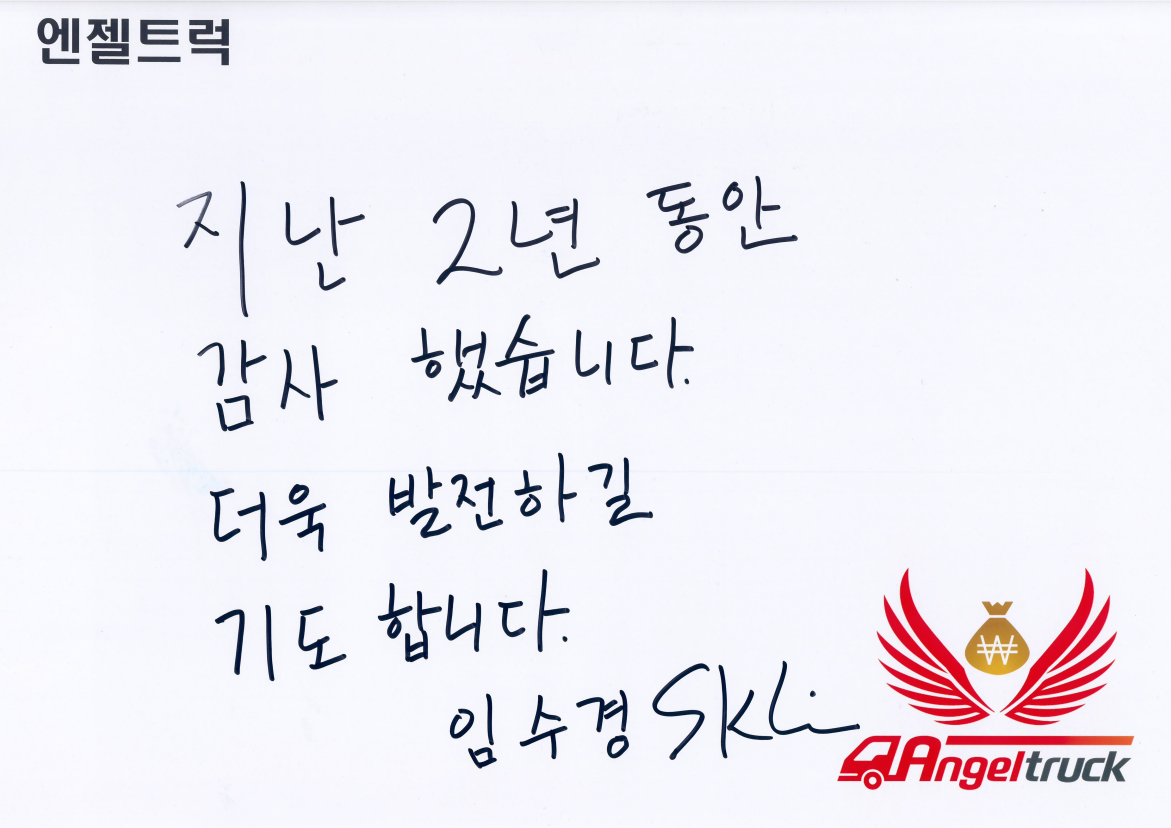 엔젤트럭
지난 2년 동안
감사 했습니다.
더욱 발전하길
기도 합니다.
임수경 SKLi
₩
Angeltruck